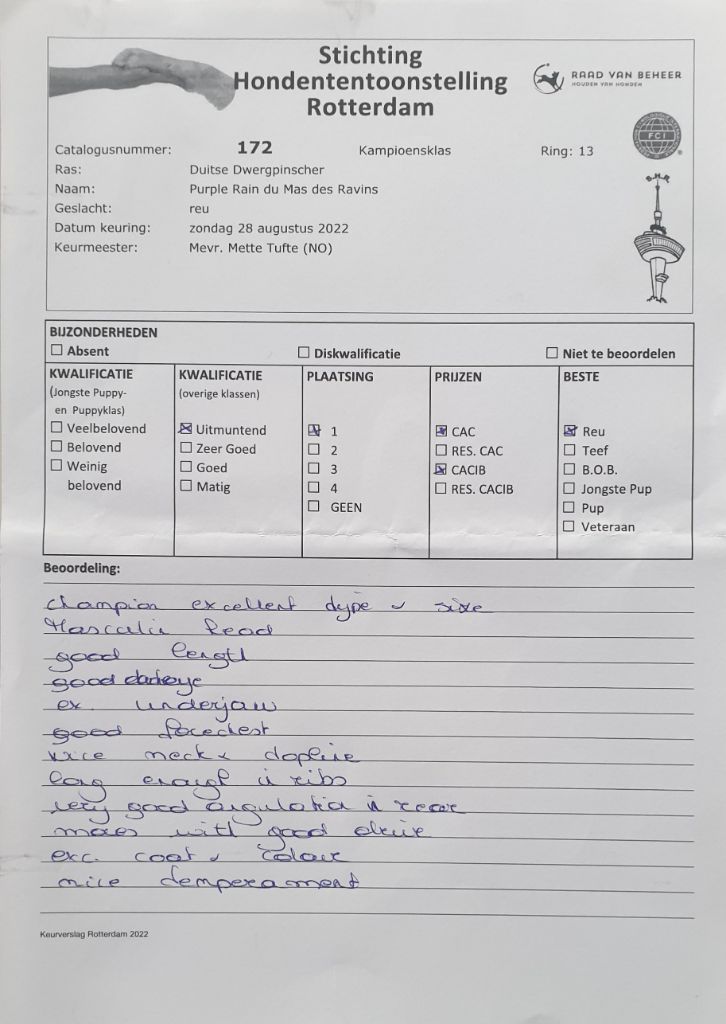 Stichting
Hondententoonstelling
Rotterdam
RAAD VAN BEHEER
HOUDEN VAN HONDEN
FCI
B.H.R.
Catalogusnummer: 172 Kampioensklas Ring: 13
Ras: Duitse Dwergpinscher
Naam: Purple Rain du Mas des Ravins
Geslacht: reu
Datum keuring: zondag 28 augustus 2022
Keurmeester: Mevr. Mette Tufte (NO)
BIJZONDERHEDEN
☐ Absent ☐ Diskwalificatie ☐ Niet te beoordelen
KWALIFICATIE
(Jongste Puppy-
en Puppyklas)
☐ Veelbelovend
☐ Belovend
☐ Weinig
belovend
KWALIFICATIE
(overige klassen)
☒ Uitmuntend
☐ Zeer Goed
☐ Goed
☐ Matig
PLAATSING
☒ 1
☐ 2
☐ 3
☐ 4
☐ GEEN
PRIJZEN
☒ CAC
☐ RES. CAC
☒ CACIB
☐ RES. CACIB
BESTE
☒ Reu
☐ Teef
☐ B.O.B.
☐ Jongste Pup
☐ Pup
☐ Veteraan
Beoordeling:
champion excellent type & size
Masculin head
good length
good dark eye
ex. underjaw
good forechest
nice neck & topline
long enough in ribs
very good angulation in rear
moves with good drive
exc. coat & colour
nice temperament
Keurverslag Rotterdam 2022